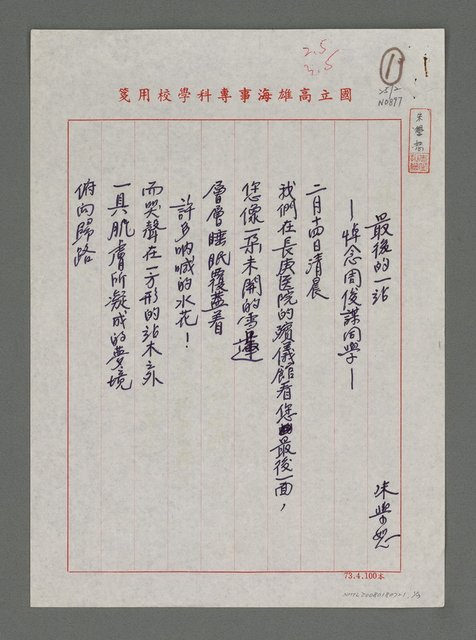 國立高雄海事專科學校用箋
2.5
3.5
1
25/2
N0897
最後的一站
—悼念周俊謀同學—
朱學恕
二月十四日清晨
我們在長庚医院的殯儀館看您最後一面，
您像一朵未開的雪蓮
層層睡眠覆蓋着
許多吶喊的水花！
而哭聲在一方形的沾木之外
一具肌膚所凝成的夢境
俯向歸路
73.4.100本